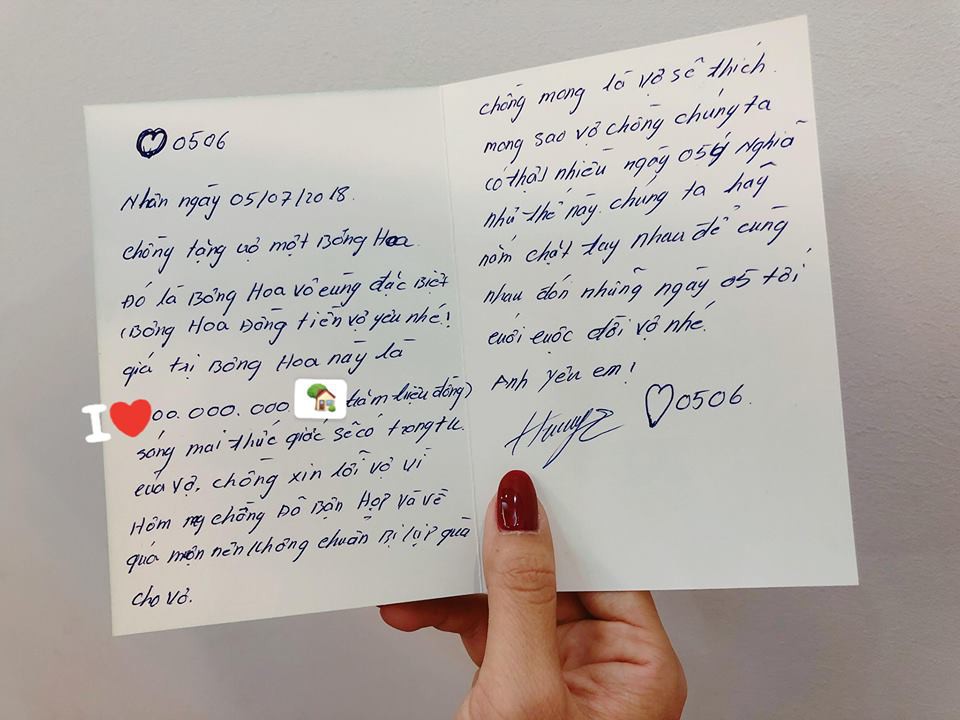 ♡ 0506
Nhân ngày 05/07/2018.
chồng tặng vợ một Bông Hoa.
Đó là Bông Hoa vô cùng đặc Biệt
(Bông Hoa Đồng tiền vợ yêu nhé!)
giá trị Bông Hoa này là
I ❤ 00.000.000 trăm triệu đồng)
sáng mai thức giấc sẽ có trong tk
của vợ, chồng xin lỗi vợ vì
Hôm nay chồng Đã Bận Họp và về
quá muộn nên không chuẩn Bị kịp quà
cho vợ.
chồng mong là vợ sẽ thích
mong sao vợ chồng chúng ta
có thật nhiều ngày 05 ý Nghĩa
như thế này. chúng ta hãy
nắm chặt tay nhau để cùng
nhau đón những ngày 05 tới
cuối cuộc đời vợ nhé.
Anh yêu em!
♡ 0506.